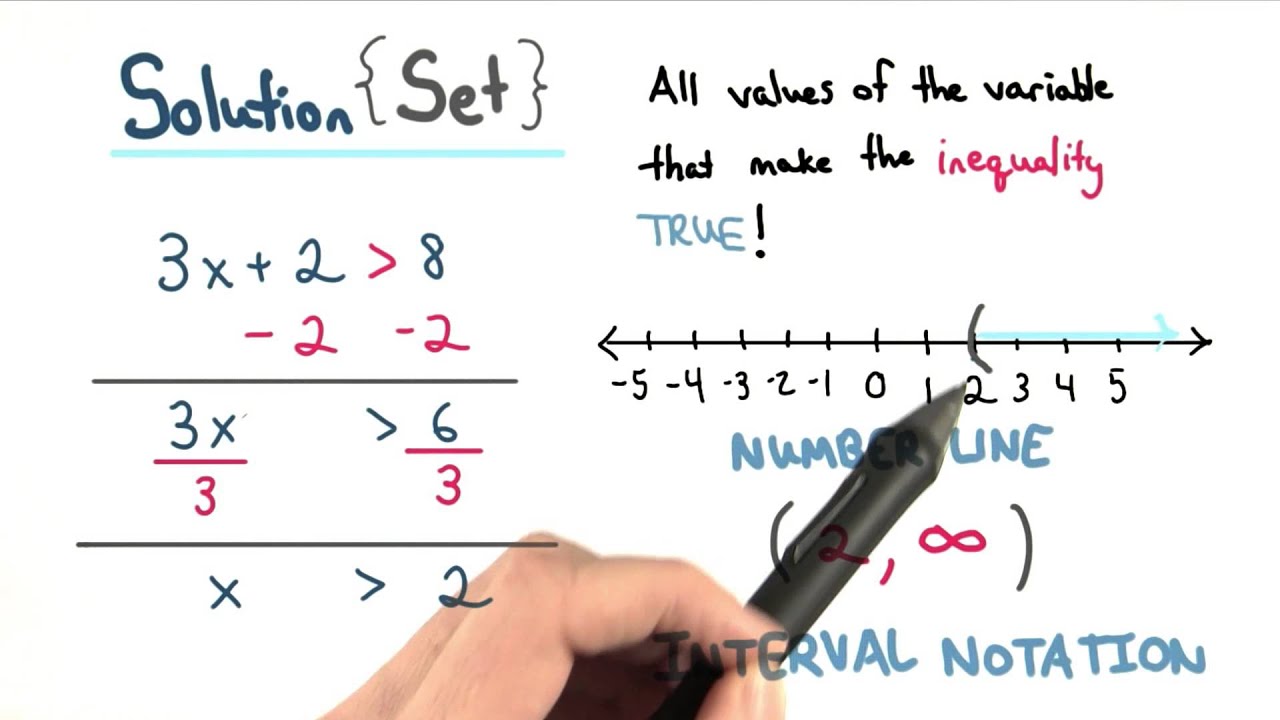 Solution {Set}
3x + 2 > 8
- 2 - 2
3x > 6
3 3
x > 2
All values of the variable
that make the inequality
TRUE!
-5 -4 -3 -2 -1 0 1 2 3 4 5
NUMBER LINE
(2, ∞)
INTERVAL NOTATION